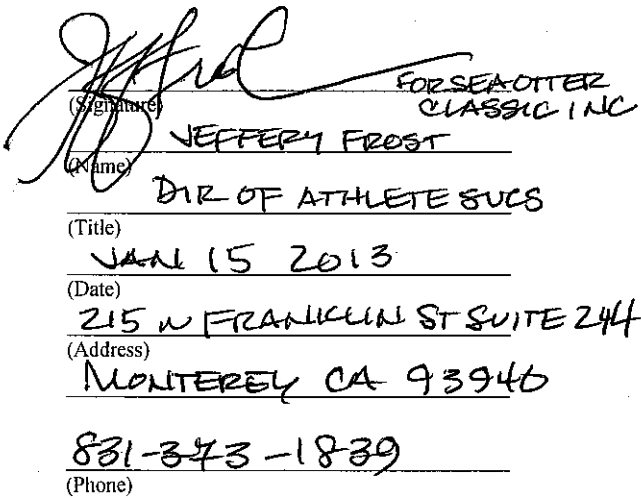 FOR SEA OTTER
CLASSIC INC
(Signature)
JEFFERY FROST
(Name)
DIR OF ATHLETE SVCS
(Title)
JAN 15 2013
(Date)
215 W FRANKLIN ST SUITE 244
(Address)
MONTEREY CA 93940
831-373-1839
(Phone)